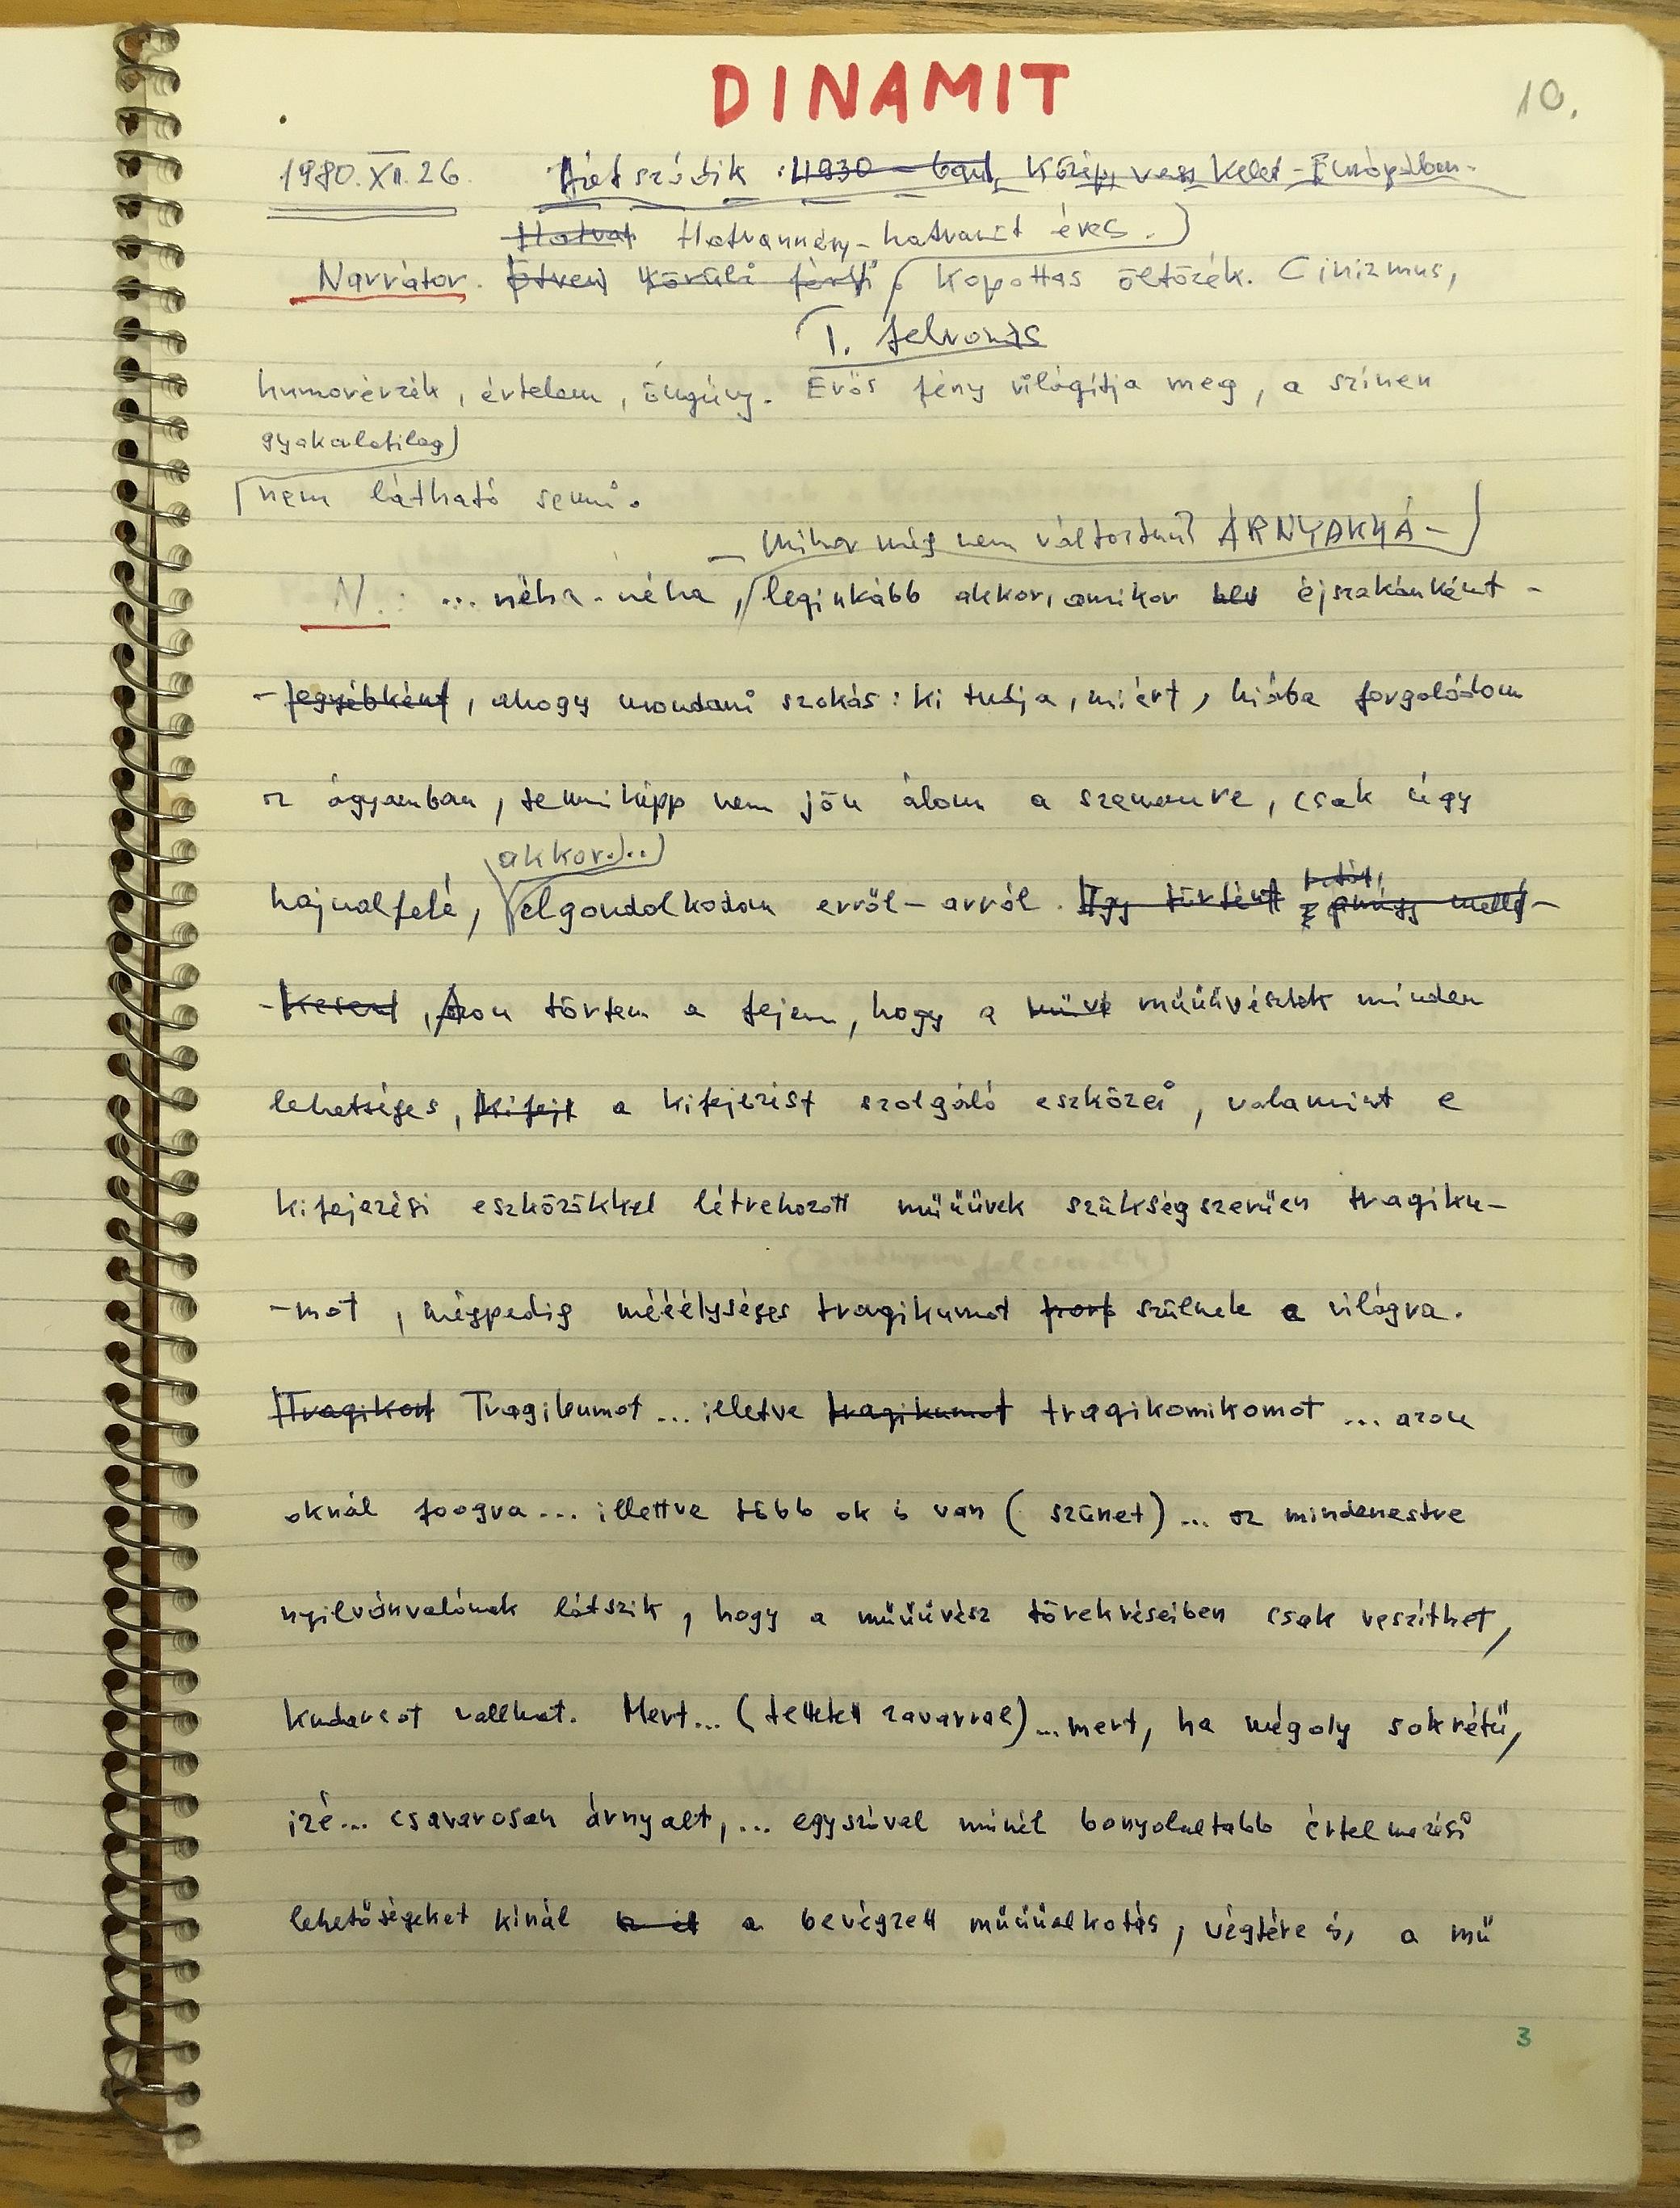 DINAMIT
10.
1980. XII. 26. Játszódik : 1930-ban, Közép, vagy Kelet-Európában.
Hatvan Hatvannégy-hatvanöt éves.
Narrátor. Ötven körüli férfi Kopottas öltözék. Cinizmus,
I. felvonás
humorérzék, értelem, öngúny. Erős fény világítja meg, a színen
gyakorlatilag
nem látható semmi.
mikor még nem változtunk ÁRNYAKKÁ-
N.: ... néha-néha, leginkább akkor, amikor éjszakánként -
- egyébként, ahogy mondani szokás: ki tudja, miért, hiába forgolódom
az ágyamban, semmiképp nem jön álom a szememre, csak úgy
akkor...
hajnalfelé, elgondolkodom erről-arról. Így történt
, Azon törtem a fejem, hogy a műve műűűvészetek minden
lehetséges, kifeje a kifejezést szolgáló eszközei, valamint e
kifejezési eszközökkel létrehozott műűűvek szükségszerűen tragiku-
-mot, mégpedig mééélységes tragikumot szülnek a világra.
Tragikot Tragikumot ... illetve tragikumot tragikomikomot ... azon
oknál foogva ... illettve több ok is van ( szünet) ... az mindenestre
nyilvánvalónak látszik, hogy a műűűvész törekvéseiben csak veszíthet,
kudarcot vallhat. Mert... (tettetett zavarral) ... mert, ha mégoly sokrétű,
izé... csavarosan árnyalt, ... egyszóval minél bonyolultabb értelmezési
lehetőségeket kínál a bevégzett műűűalkotás, végtére is, a mű
3